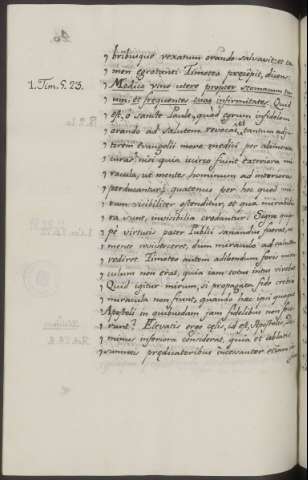 bribusque vexatum orando salvavit, et ta
men egrotanti Timoteo precepit, dicens
1. Tim. 5. 23. Modico vino utere propter stomacum tu
um, et frequentes tuas infirmitates. Quid
est, o sancte Paule, quod egrum infidelem
orando ad salutem revocas, tantum adju
torem evangelii more medici per alimenta
curas? nisi quia idcirco fiunt exteriora mi
racula, ut mentes hominum ad interiora
perducantur, quatenus per hoc quod mi
rum visibiliter ostenditur, et quae mirabilio
ra sunt, invisibilia credantur. Signo quip
pe virtutis pater Publii sanandus fuerat, ut
mente revivisceret, dum miraculo ad salutem
rediret. Timoteo autem adibendum foris mira
culum non erat, quia jam totus intus vivebat.
Quid igitur mirum, si propagata fide crebra
miracula non fiunt, quando haec ipsi quoque
Apostoli in quibusdam jam fidelibus non fece
runt? Elevatis ergo celis, id est, Apostolis, Do
minus inferiora considerat, quia et sublatis
summis predicatoribus